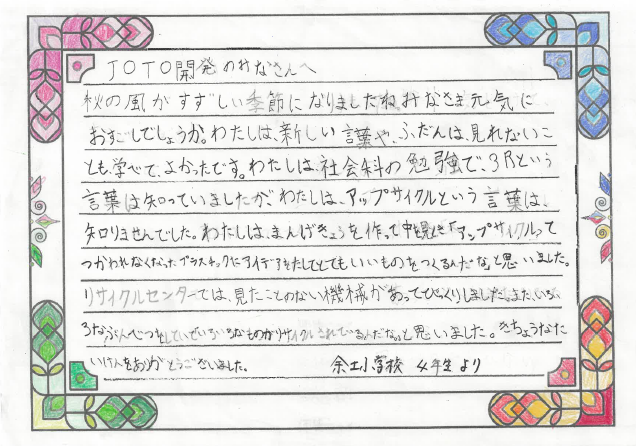 JOTO開発のみなさんへ
秋の風がすずしい季節になりましたねみなさま元気に
おすごしでしょうか。わたしは、新しい言葉や、ふだんは、見れないこ
とも、学べて、よかったです。わたしは、社会科の勉強で、3Rという
言葉は知っていましたが、わたしは、アップサイクルという言葉は、
知りませんでした。わたしは、まんげきょうを作って「アップサイクルって
つかわれなくなったプラスチックにアイデアをたしてとてもいいものをつくるんだな」と思いました。
リサイクルセンターでは、見たことのない機械があってびっくりしました。また、いろ
ろなぶんべつをしていていろいろなものがリサイクルされているんだな」と思いました。きちょうなた
いけんをありがとうございました。
小学校 4年生より